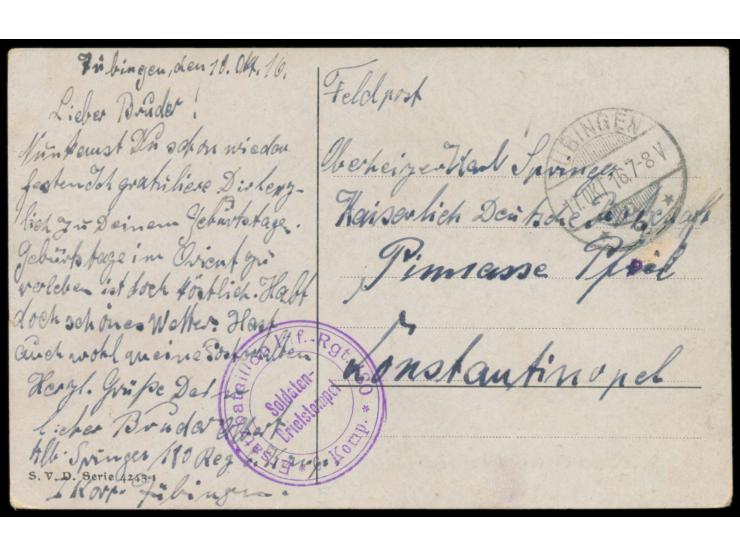 Tübingen, den 10. Okt. 16.
Lieber Bruder!
Nun kannst Du schon wieder
festen Ich gratuliere Dir herz-
lich zu Deinem Geburtstage.
Geburtstage im Orient zu
verleben ist doch köstlich. Habt
doch schönes Wetter. Hast
auch wohl meine Post erhalten
Herzl. Grüße Dein
lieber Bruder
Springer 180 Reg
Tübingen.
S. V. D. Serie 4243
Feldpost
Oberheizer Karl Springer
Kaiserlich Deutsche Botschaft
Pinnasse Pfeil
Konstantinopel
TÜBINGEN
11.OKT.16.7-8V
Ersatz-Bataillon Inf.-Rgt. 180
* Komp. *
Soldaten-
Briefstempel